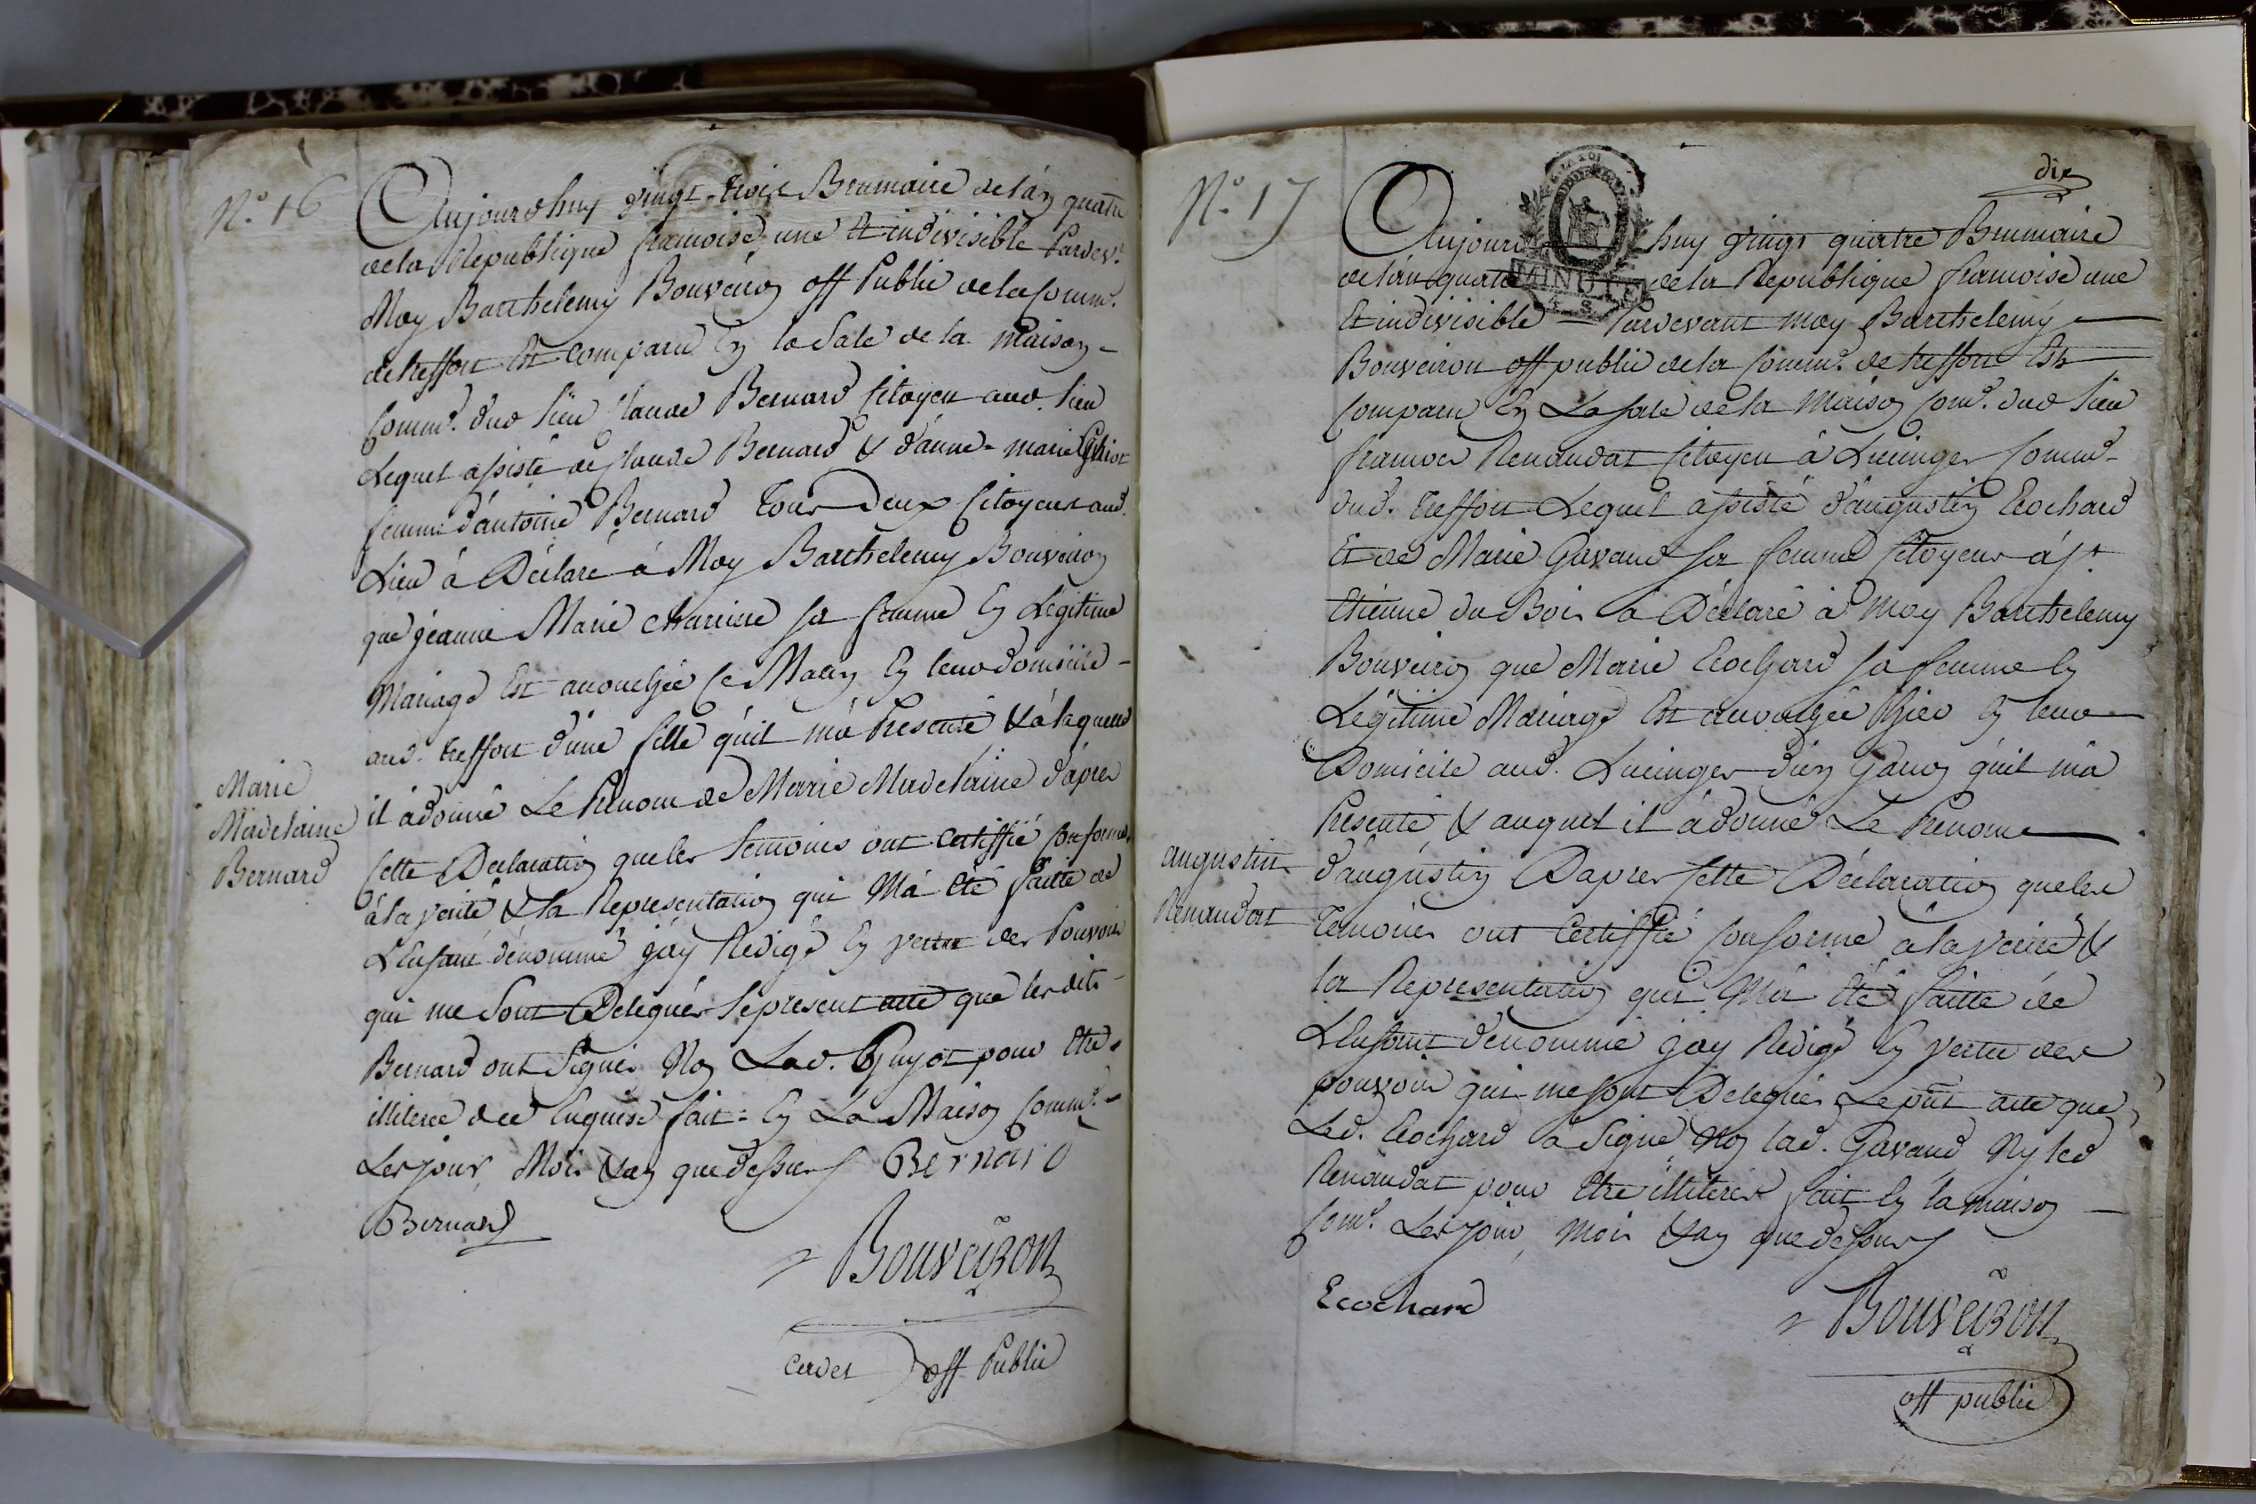 N.° 16
Aujourdhuy vingt-trois Brumaire de lán quatre
de la Republique francoise, une Et indivisible Pardev.t
Moy Barthelemy Bouveiroy off Public de la Comm.e
de treffort Est comparu Ey la Sale de la maisoy -
Comm.e dud lieu Claude Bernard Citoyen aud. lieu
Lequel assisté de Claude Bernard & d'anne-marie
femme d'antoine Bernard tous deux Citoyens aud.
Lieu à Déclaré à Moy Barthelemy Bouveiroy
que jéanne Marie charriere sa femme Ey Légitime
Mariage Est accouchée Ce Matiy Ey leur domicile -
aud. treffort d'une fille qúil má Presenté & à laquelle
il à donné Le Prenom de Marie Madelaine d'áprès
Marie
Madelaine
Bernard
Cette Déclaratioy que les temoins ont Certiffié Conforme
à la verité & la Representatioy qui Má Eté faitte de
L'Enfant dénommé j'áy Rédigé Ey vertu des Pouvoirs
qui me sont Délégués le present acte que lesdits -
Bernard ont Signés Noy Lad. Guyot pour Etre
illiterée de ce Enquise fait = Ey La Maisoy Comm.e
Les jour, Mois & ay que dessus Bernard
Bernard
Bouveiron
Cerdet off Public
dix
N.° 17
MINUTE
Aujourd huy vingt quatre Brumaire
de lán quatre de la Republique francoise une
Et indivisible — Pardevant moy Barthelemy
Bouveiron off public de la Comm.e de treffort Est
Comparu Ey La sale de la Maisoy Com.e dud lieu
francois Renaudat Citoyen à Lucinges Comm.e
dud. treffort Lequel assisté d'augustiy Ecochard
Et de Marie Gavand sa femme Citoyens á S.t
Etienne du Bois à Déclaré à Moy Barthelemy
Bouveiroy que Marie Ecochard sa femme Ey
Légitime Mariage Est accouchée hier Ey leur
Domicile aud. Lucinges d'úy Garcoy qúil má
Presenté & auquel il à donné Le Prenom
augustin
Renaudat
d'áugustiy D'après Cette Déclaratioy que les
temoins ont Certiffié Conforme à la verité &
la Representatioy qui Má Eté faitte de
L'Enfant dénommé j'áy Rédigé Ey vertu des
pouvoirs qui me sont Délégués Le pnt acte que
Led. Ecochard à Signé Noy lad. Gavand Ny led
Renaudat pour Etre illiterés fait Ey la maisoy
Com.e Les jour, Mois & ay que dessus
Ecochard
Bouveiron
off public